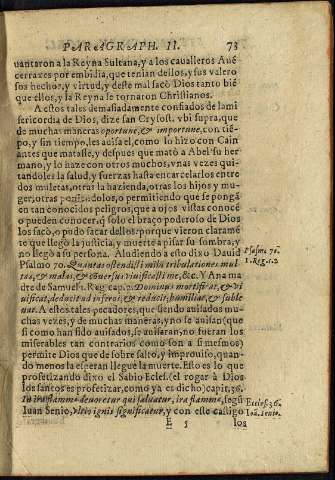 PARAGRAPH. II. 73
uantaron a la Reyna Sultana, y a los caualleros Aué
cerrayes por embidia, que tenian dellos, y sus valero
sos hechos, y virtud, y deste mal sacò Dios tanto bié
que ellos, y la Reyna se tornaron Christianos.
A estos tales demasiadamente confiados de la mi
sericordia de Dios, dize san Crysost. vbi supra, que
de muchas maneras oportune, & importune, con tié-
po, y sin tiempo, les auisa el, como lo hizo con Cain
antes que matasse, y despues que matò a Abel su her
mano, y lo haze con otros muchos, vnas vezes qui-
tandoles la salud, y fuerças hasta encarcelarlos entre
dos muletas, otras la hazienda, otras los hijos y mu-
ger, otras poniendolos, o permitiendo que se pongã
en tan conocidos peligros, que a ojos vistas conocé
o pueden conocer, q̃ solo el braço poderoso de Dios
los sacò, o pudo sacar dellos: porque vieron claramé
te que llegò la justicia, y muerte a pisar su sombra, y
no llegò a su persona. Aludiendo a esto dixo Dauid
Psalmo 70. Quantas ostendisti mihi tribulationes mul
tas, & malas, & conuersus viuificasti me, &c. Y Ana ma
dre de Samuel 1. Reg. cap. 2. Dominus mortificat, & vi
uificat, deducit ad inferos, & reducit, humiliat, & suble
uat. A estos tales pecadores, que siendo auisados mu-
chas vezes, y de muchas maneras, y no se auisan (que
si como han sido auisados, se auisaran, no fueran los
miserables tan contrarios como son a si mesmos)
permite Dios que de sobresalto, y improuiso, quan-
do menos la esperan llegue la muerte. Esto es lo que
profetizando dixo el Sabio Eccles. (el rogar à Dios
los santos es profetizar, como ya es dicho) capit. 36.
In ira flammæ deuoretur qui saluatur, ira flammæ, segũ
Iuan Senio, vltis ignis significatur, y con este castigo
E 5 los
Psalmo 70.
1. Reg. c. 2
Eccles. 36.
Ioã. Senio.